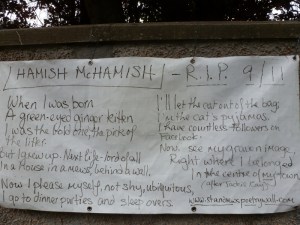 HAMISH McHAMISH - R.I.P. 9/11
When I was born
A green-eyed ginger kitten
I was the bold one, the pick of
the litter.
But I grew up. Next life - lord of all
in a House in a mews, behind a wall.
Now I please myself, not shy, ubiquitous,
I go to dinner parties and sleep overs.
I'll let the cat out of the bag;
I'm the cat's pyjamas,
I have countless followers on
Facebook.
Now see my graven image
Right where I belonged
in the centre of my town
(after
www.stanzaspoetrywall.com